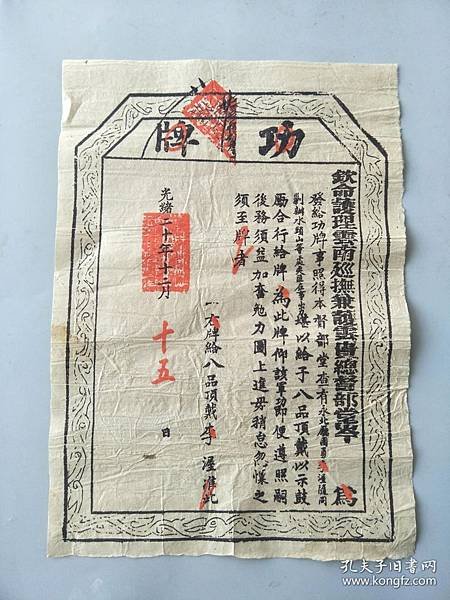 功牌
欽命護理雲南巡撫兼護雲貴總督部堂 為
發給功牌事照得本督部堂查有永北廳團勇李 隨同
剿辦水 山等處
堪以給予八品頂戴以示鼓
勵合行給牌為此牌仰該軍功即便遵照嗣
後務須益加奮勉力圖上進毋稍怠忽懷之
須至牌者
右牌給八品頂戴李 准此
光緒二十年十二月十五日
孔夫子旧书网
www.kongfz.com